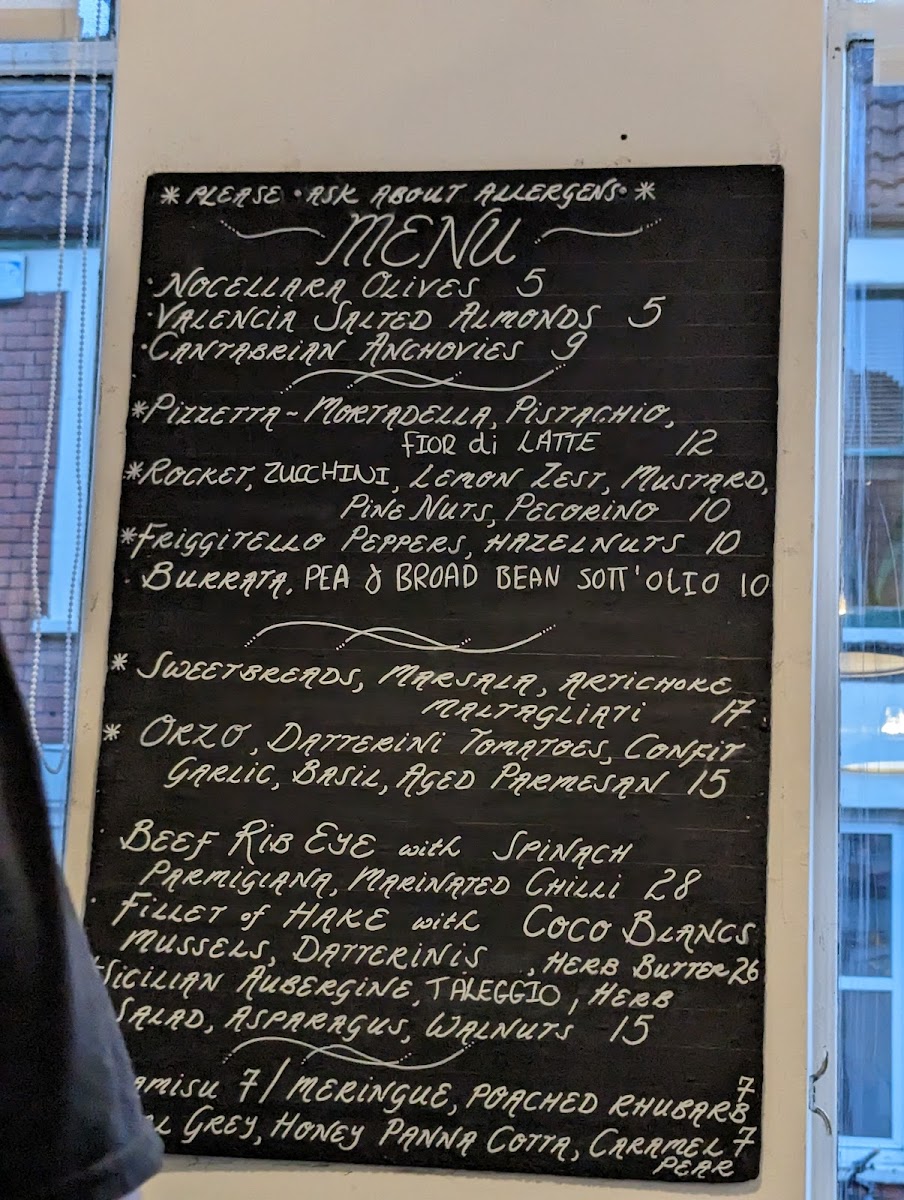 * PLEASE • ASK ABOUT ALLERGENS• *
MENU
• NOCELLARA OLIVES 5
• VALENCIA SALTED ALMONDS 5
• CANTABRIAN ANCHOVIES 9
* PIZZETTA ~ MORTADELLA, PISTACHIO,
FIOR di LATTE 12
* ROCKET, ZUCCHINI, LEMON ZEST, MUSTARD,
PINE NUTS, PECORINO 10
* FRIGGITELLO PEPPERS, HAZELNUTS 10
• BURRATA, PEA & BROAD BEAN SOTT'OLIO 10
* SWEETBREADS, MARSALA, ARTICHOKE
MALTAGLIATI 17
* ORZO, DATTERINI TOMATOES, CONFIT
GARLIC, BASIL, AGED PARMESAN 15
• BEEF RIB EYE with SPINACH
PARMIGIANA, MARINATED CHILLI 28
• FILLET of HAKE with COCO BLANCS
MUSSELS, DATTERINIS , HERB BUTTER 26
SICILIAN AUBERGINE, TALEGGIO, HERB
SALAD, ASPARAGUS, WALNUTS 15
AMISU 7 / MERINGUE, POACHED RHUBARB 7
L GREY, HONEY PANNA COTTA, CARAMEL 7
PEAR